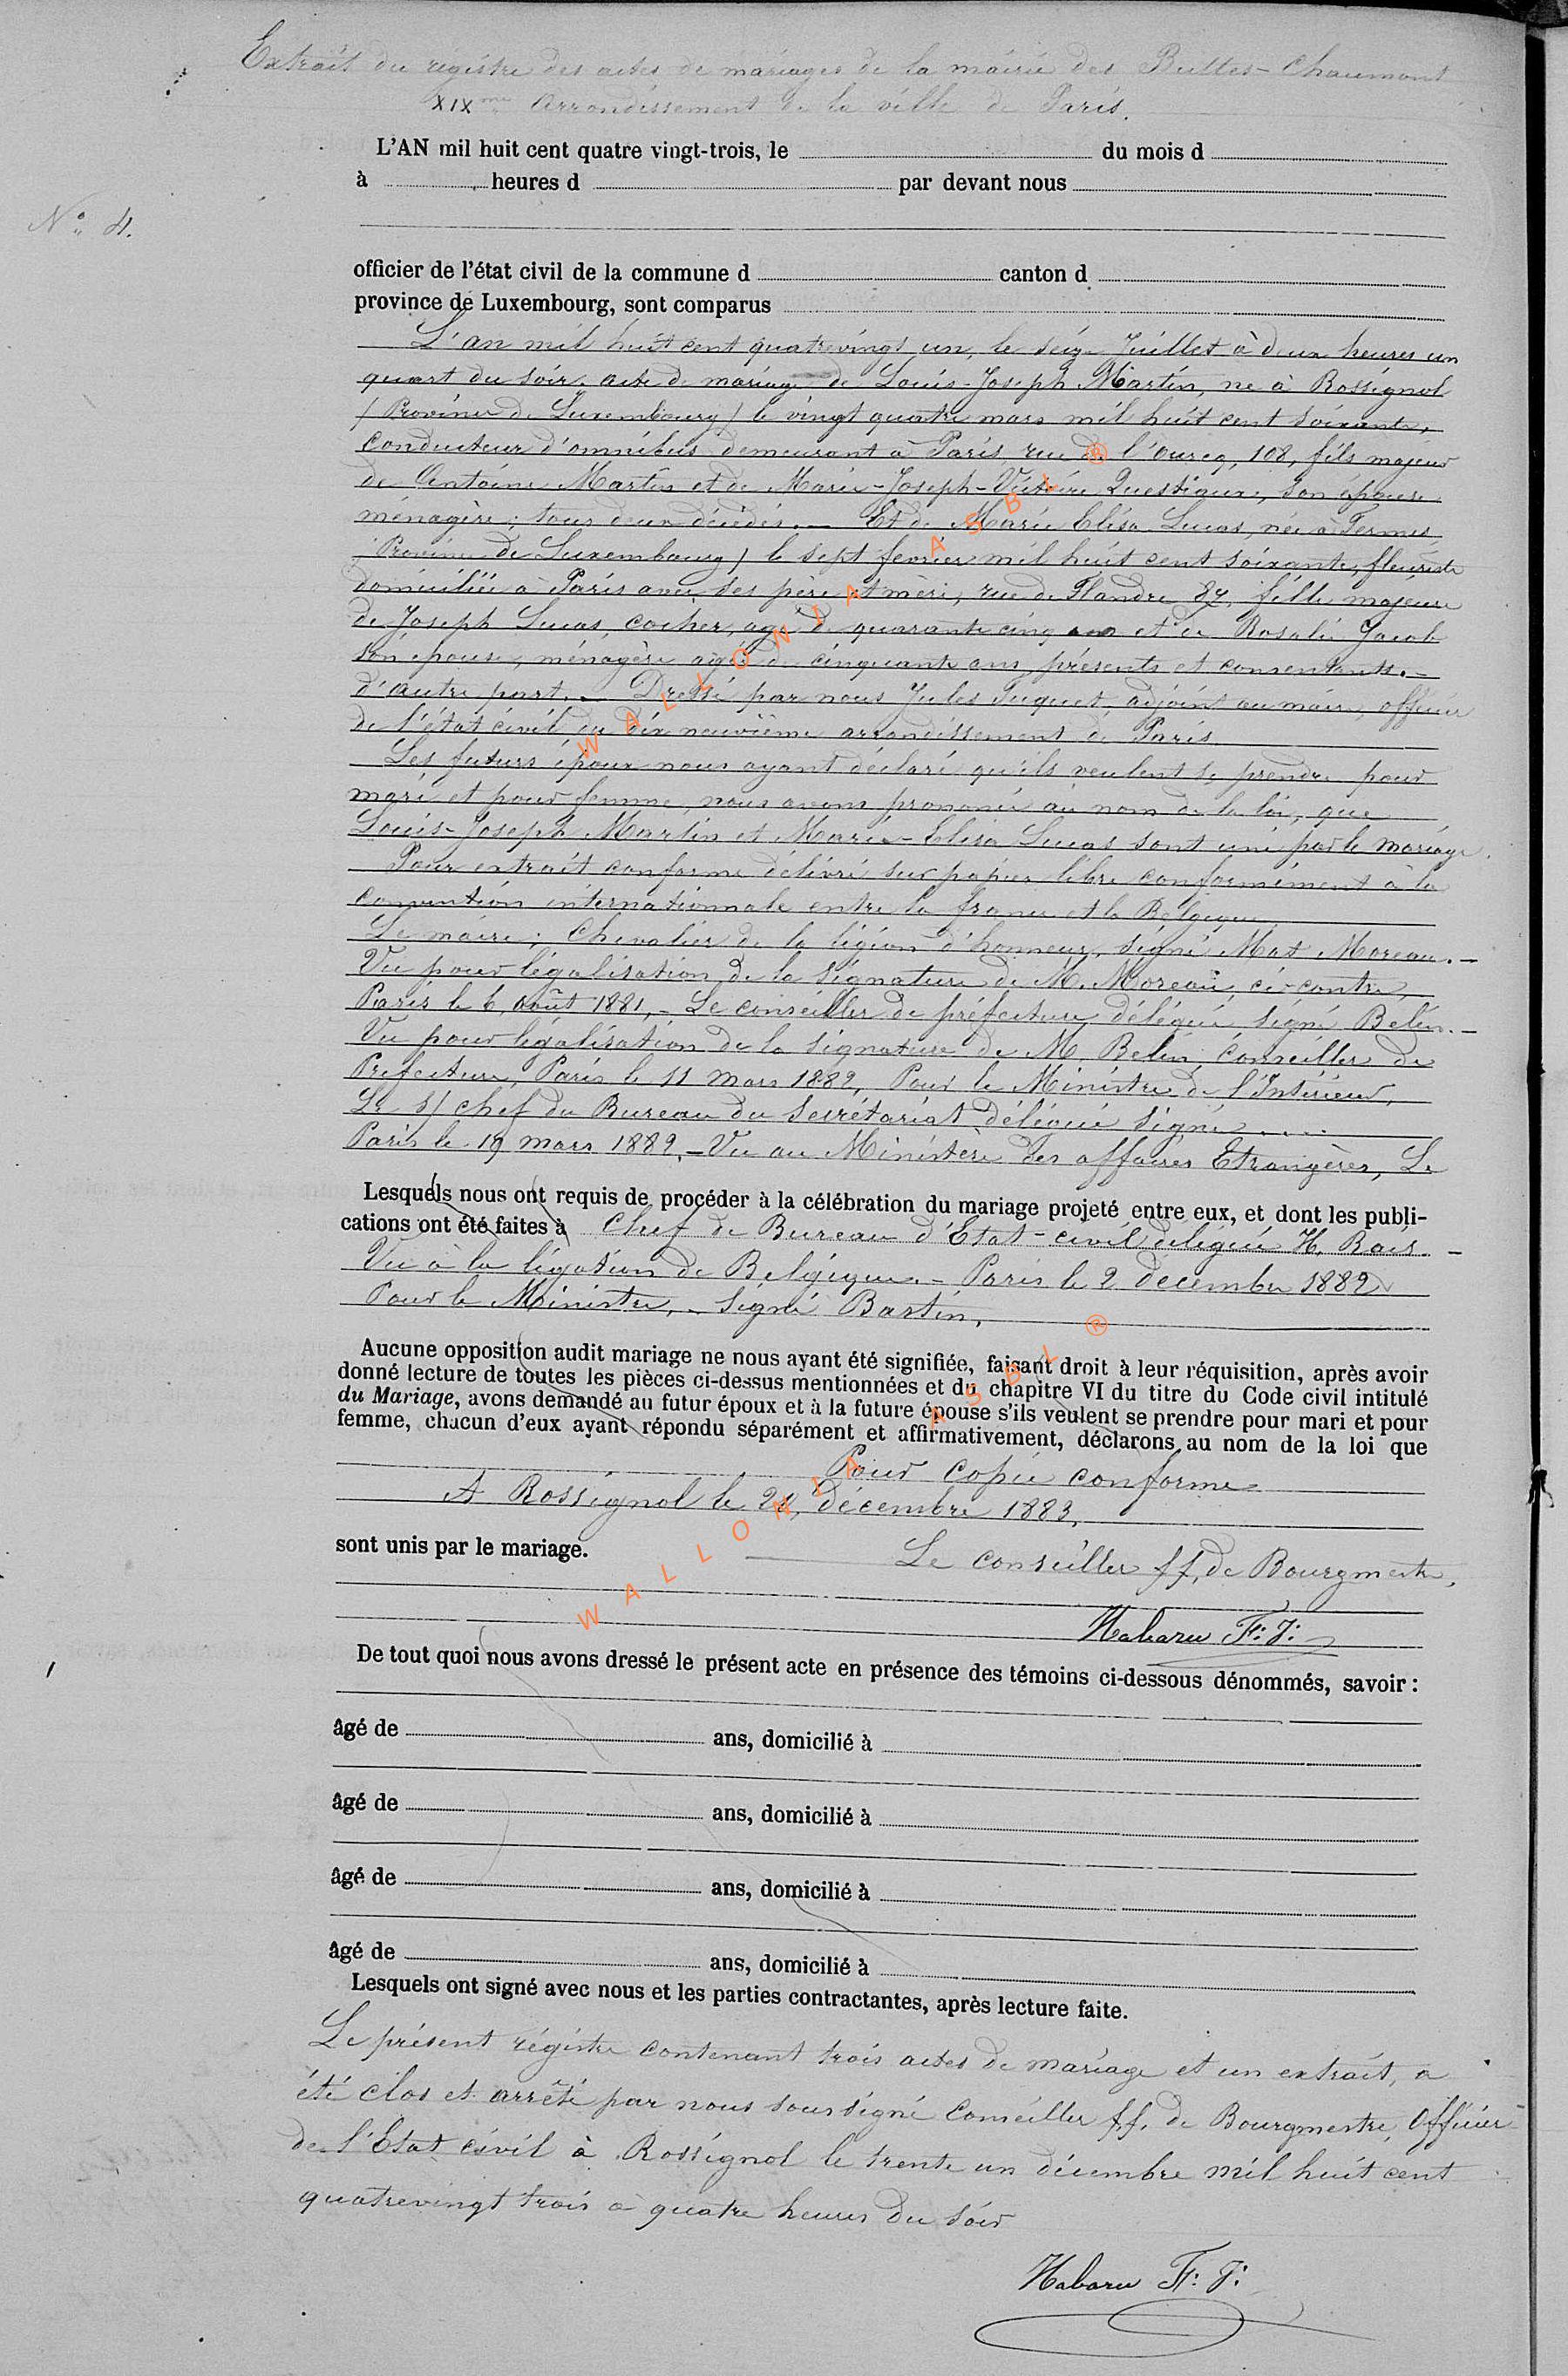 Extrait du régistre des actes de mariages de la mairie des Buttes-Chaumont
XIXme Arrondissement de la ville de Paris.
L'AN mil huit cent quatre vingt-trois, le du mois d
à heures d par devant nous
N° 4.
officier de l'état civil de la commune d canton d
province de Luxembourg, sont comparus
L'an mil huit cent quatrevingt un, le seize Juillet à deux heures un
quart du soir. acte de mariage de Louis-Joseph Martin, né à Rossignol
(Province de Luxembourg) le vingt quatre mars mil huit cent soixante,
conducteur d'omnibus demeurant à Paris rue de l'ourcq, 108, fils majeur
de Antoine Martin et de Marie-Joseph-Victoire Questiaux, son épouse
ménagère; tous deux décédés. — Et de Marie Elisa Lucas, née à Termes
(Province de Luxembourg) le sept fevrier mil huit cent soixante, fleuriste
domiciliée à Paris avec ses père et mère, rue de Flandre 87, fille majeure
de Joseph Lucas, cocher, agé de quarante cinq ans et de Rosalie Jacob
son épouse, ménagère agée de cinquante ans, présents et consentants. —
d'autre part. — Dressé par nous Jules Juquet, adjoint au maire, officier
de l'état civil du dix neuvième arrondissement de Paris
Les futurs époux nous ayant déclaré qu'ils veulent se prendre pour
mari et pour femme, nous avons prononcé au nom de la loi, que
Louis-Joseph Martin et Marie-Elisa Lucas sont uni par le mariage.
Pour extrait conforme délivré sur papier libre conformément à la
convention internationnale entre la france et la Belgique
Le maire; Chevalier de la légion d'honneur, signé Mat Moreau. —
Vu pour légalisation de la signature de M. Moreau, ci-contre,
Paris le 6, août 1881, — Le conseiller de préfecture délégué signé Belin. —
Vu pour légalisation de la signature de M. Belin, conseiller de
Prefecture, Paris le 11 mars 1882, Pour le Ministre de l'Intérieur,
Le s/ chef du Bureau du Secrétariat délégué signé ....
Paris le 19 mars 1882. — Vu au Ministère des affaires Etrangères, Le
Lesquels nous ont requis de procéder à la célébration du mariage projeté entre eux, et dont les publi-
cations ont été faites à Chef de Bureau d'Etat-civil délégué H. Rais. —
Vu à la légation de Belgique. — Paris le 2 décembre 1882
Pour le Ministre, — signé Bastin,
Aucune opposition audit mariage ne nous ayant été signifiée, faisant droit à leur réquisition, après avoir
donné lecture de toutes les pièces ci-dessus mentionnées et du chapitre VI du titre du Code civil intitulé
du Mariage, avons demandé au futur époux et à la future épouse s'ils veulent se prendre pour mari et pour
femme, chacun d'eux ayant répondu séparément et affirmativement, déclarons au nom de la loi que
Pour copie conforme
A Rossignol le 28, décembre 1883,
sont unis par le mariage.
Le conseiller ff, de Bourgmestre,
Habaru F: J:
De tout quoi nous avons dressé le présent acte en présence des témoins ci-dessous dénommés, savoir :
âgé de ans, domicilié à
âgé de ans, domicilié à
âgé de ans, domicilié à
âgé de ans, domicilié à
Lesquels ont signé avec nous et les parties contractantes, après lecture faite.
Le présent régistre contenant trois actes de mariage et un extrait, a
été clos et arrêté par nous soussigné Conseiller ff. de Bourgmestre, Officier
de l'Etat civil à Rossignol le trente un décembre mil huit cent
quatrevingt trois à quatre heures du soir
Habaru F: J:
WALLONIA ASBL ®
WALLONIA ASBL ®